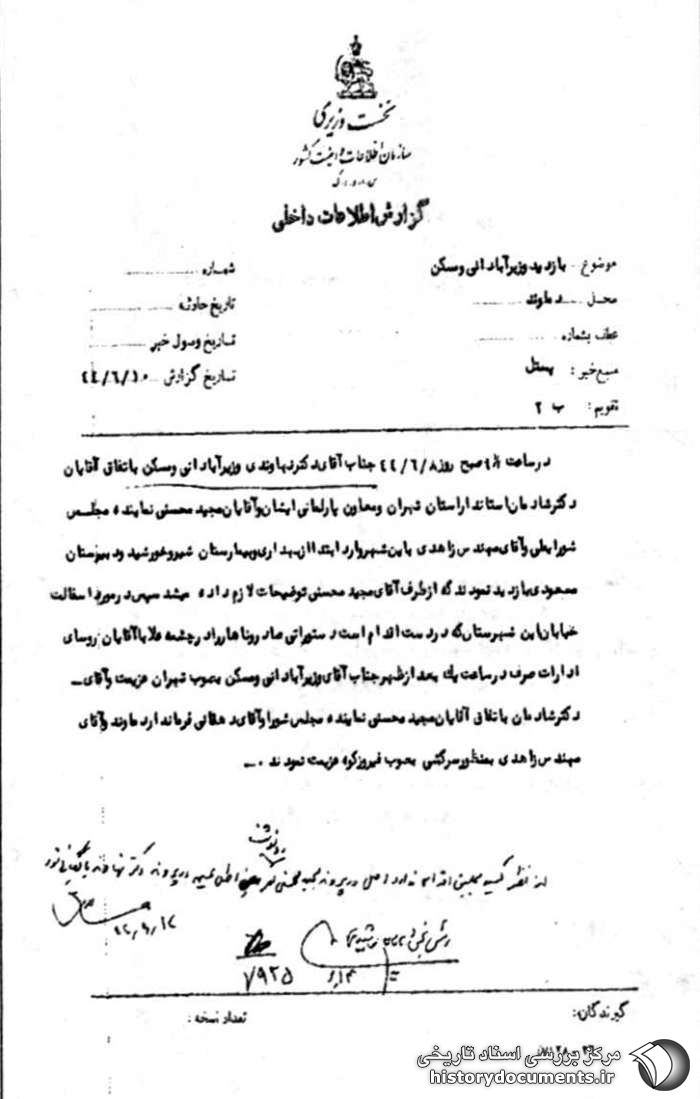 نخست وزیری
سازمان اطلاعات و امنیت کشور
س.ا.و.ا.ک
گزارش اطلاعات داخلی
موضوع بازدید وزیر آبادانی ومسکن
شماره
محل دماوند
تاریخ حادثه
عطف بشماره
تاریخ وصول خبر
منبع خبر:
تاریخ گزارش ۴۴/۶/۱۰
تقویم: ب ۲
درساعت ۹ صبح روز ۴۴/۶/۸ جناب آقای دکتر نهاوندی وزیر آبادانی ومسکن باتفاق آقایان
دکتر شادمان استاندار استان تهران ومعاون پارلمانی ایشان وآقایان مجید محسنی نماینده مجلس
شورایملی وآقای مهندس زاهدی باین شهر وارد ابتدا از بهداری وبیمارستان شیروخورشید ودبیرستان
مسعودی بازدید نمودند که ازطرف آقای مجید محسنی توضیحات لازم داده میشد سپس درمورد اسفالت
خیابان این شهرستان که دردست اقدام است دستوراتی صادر وناهار رادر چشمه علا باآقایان روسای
ادارات صرف درساعت یک بعدازظهر جناب آقای وزیر آبادانی ومسکن بصوب تهران عزیمت وآقای ــ
دکتر شادمان باتفاق آقایان مجید محسنی نماینده مجلس شورا وآقای دهقانی فرماندار دماوند وآقای
مهندس زاهدی بمنظور سرکشی بصوب فیروزکوه عزیمت نمودند ۰ ــ
رونوشت
از نظر
اصل در پرونده مجید محسنی
در پرونده دکتر نهاوندی بایگانی شود
۷۹۲۵
گیرندگان:
تعداد نسخه:
مرکز بررسی اسناد تاریخی
historydocuments.ir